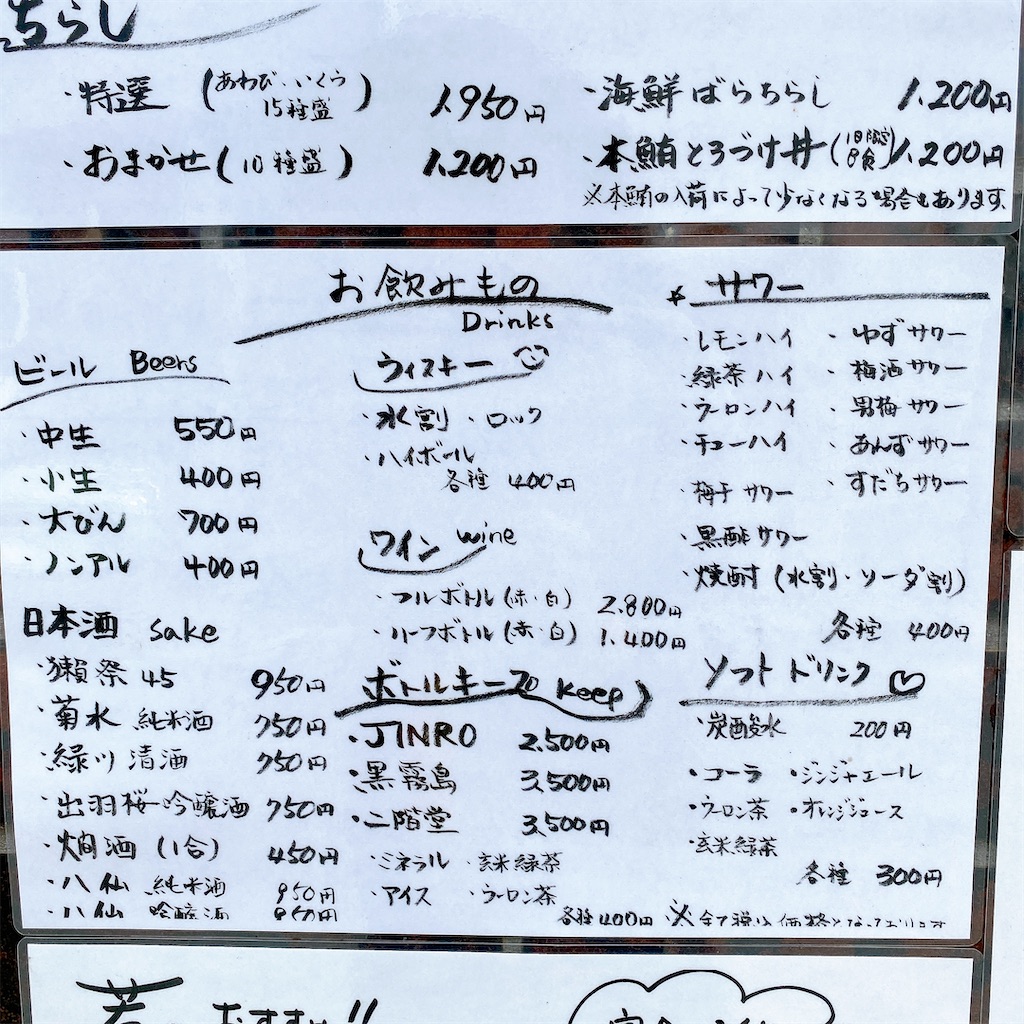 ちらし
・特選 (あわび、いくら 15種盛) 1,950円
・おまかせ (10種盛) 1,200円
・海鮮ばらちらし 1,200円
・本鮪とろづけ丼 (1日限定8食) 1,200円
※本鮪の入荷によって少なくなる場合もあります。
お飲みもの
Drinks
ビール Beers
・中生 550円
・小生 400円
・大びん 700円
・ノンアル 400円
日本酒 sake
・獺祭 45 950円
・菊水 純米酒 750円
・緑川 清酒 750円
・出羽桜 吟醸酒 750円
・燗酒 (1合) 450円
・八仙 純米酒 950円
・八仙 吟醸酒 950円
ウィスキー
・水割 ・ロック
・ハイボール
各種 400円
ワイン wine
・フルボトル (赤・白) 2,800円
・ハーフボトル (赤・白) 1,400円
ボトルキープ keep
・JINRO 2,500円
・黒霧島 3,500円
・二階堂 3,500円
・ミネラル ・玄米緑茶
・アイス ・ウーロン茶
各種400円
サワー
・レモンハイ ・ゆずサワー
・緑茶ハイ ・梅酒サワー
・ウーロンハイ ・男梅サワー
・チューハイ ・あんずサワー
・梅干サワー ・すだちサワー
・黒酢サワー
・焼酎 (水割・ソーダ割)
各種 400円
ソフトドリンク
・炭酸水 200円
・コーラ ・ジンジャエール
・ウーロン茶 ・オレンジジュース
玄米緑茶
各種 300円
※全て税込価格となっております
おすすめ!!